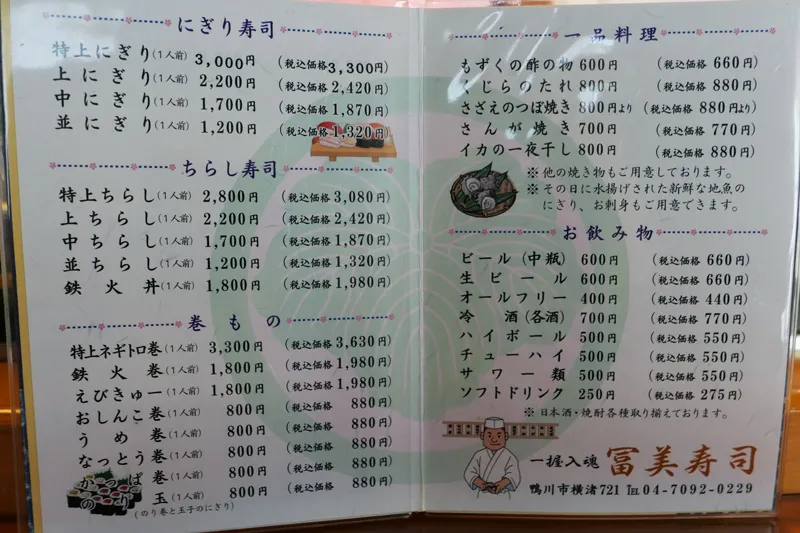 にぎり寿司
特上にぎり(1人前) 3,000円 (税込価格3,300円)
上にぎり(1人前) 2,200円 (税込価格2,420円)
中にぎり(1人前) 1,700円 (税込価格1,870円)
並にぎり(1人前) 1,200円 (税込価格1,320円)
ちらし寿司
特上ちらし(1人前) 2,800円 (税込価格3,080円)
上ちらし(1人前) 2,200円 (税込価格2,420円)
中ちらし(1人前) 1,700円 (税込価格1,870円)
並ちらし(1人前) 1,200円 (税込価格1,320円)
鉄火丼(1人前) 1,800円 (税込価格1,980円)
巻もの
特上ネギトロ巻(1人前) 3,300円 (税込価格3,630円)
鉄火巻(1人前) 1,800円 (税込価格1,980円)
えびきゅー(1人前) 1,800円 (税込価格1,980円)
おしんこ巻(1人前) 800円 (税込価格 880円)
うめ巻(1人前) 800円 (税込価格 880円)
なっとう巻(1人前) 800円 (税込価格 880円)
かっぱ巻(1人前) 800円 (税込価格 880円)
のり玉(1人前) 800円 (税込価格 880円)
(のり巻と玉子のにぎり)
一品料理
もずくの酢の物 600円 (税込価格 660円)
くじらのたれ 800円 (税込価格 880円)
さざえのつぼ焼き 800円より (税込価格 880円より)
さんが焼き 700円 (税込価格 770円)
イカの一夜干し 800円 (税込価格 880円)
※他の焼き物もご用意しております。
※その日に水揚げされた新鮮な地魚の
にぎり、お刺身もご用意できます。
お飲み物
ビール(中瓶) 600円 (税込価格 660円)
生ビール 600円 (税込価格 660円)
オールフリー 400円 (税込価格 440円)
冷酒(各酒) 700円 (税込価格 770円)
ハイボール 500円 (税込価格 550円)
チューハイ 500円 (税込価格 550円)
サワー類 500円 (税込価格 550円)
ソフトドリンク 250円 (税込価格 275円)
※日本酒・焼酎各種取り揃えております。
一握入魂 冨美寿司
鴨川市横渚721 ℡04-7092-0229